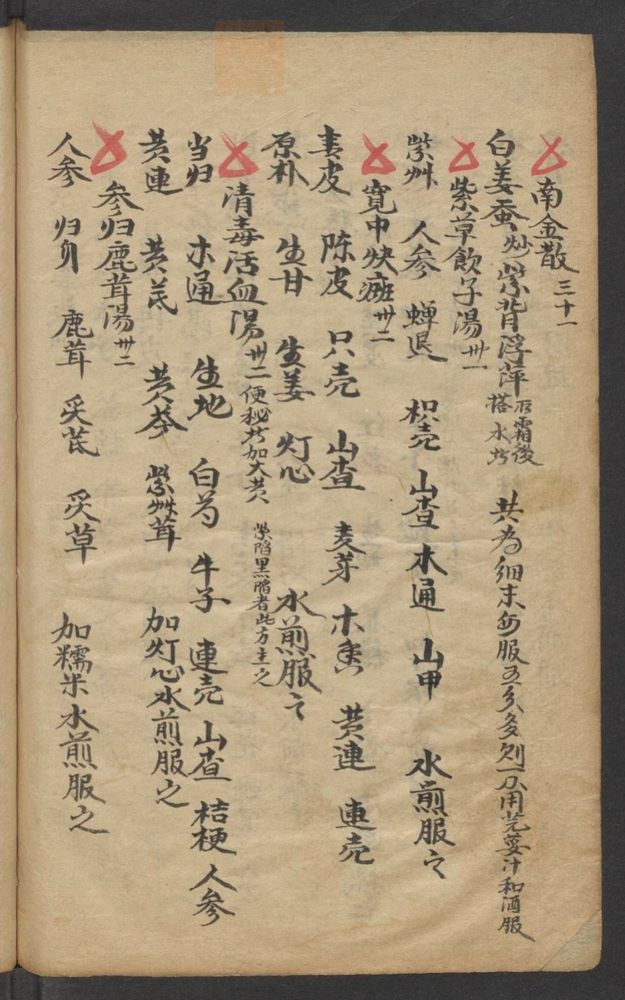 南金散 三十一
白姜蚕炒 紫背浮萍 后霜後搭水炒 共為細末每服五分多則一匁用芫荽汁和酒服
紫草飲子湯 卅一
紫艸 人参 蟬退 枳売 山査 木通 山甲 水煎服之
寛中快癍 卅二
青皮 陳皮 只売 山査 麦芽 木香 黄連 連売
厚朴 生甘 生姜 灯心 水煎服之
清毒活血湯 卅二 便秘者加大黄 紫陷黒陷者此方主之
当归 木通 生地 白芍 牛子 連売 山査 桔梗 人参
黄連 黄芪 黄芩 紫艸茸 加灯心水煎服之
参归鹿茸湯 卅二
人参 归身 鹿茸 炙芪 炙草 加糯米水煎服之